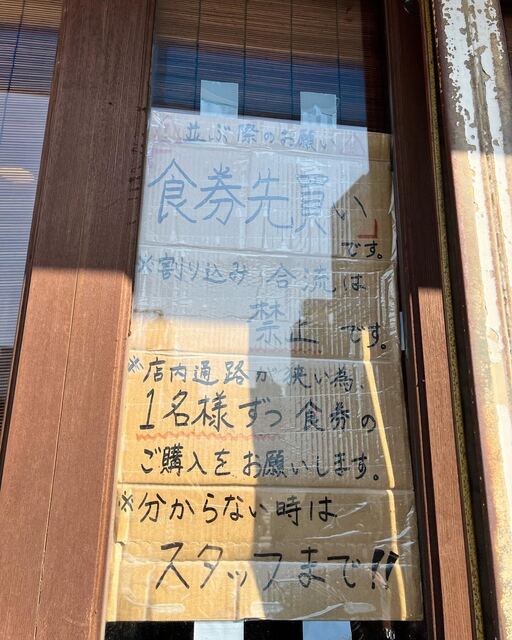 並ぶ際のお願い!!
食券先買い
です。
※割り込み 合流は
禁止です。
※店内通路が狭い為、
1名様ずつ食券の
ご購入をお願いします。
※分からない時は
スタッフまで!!